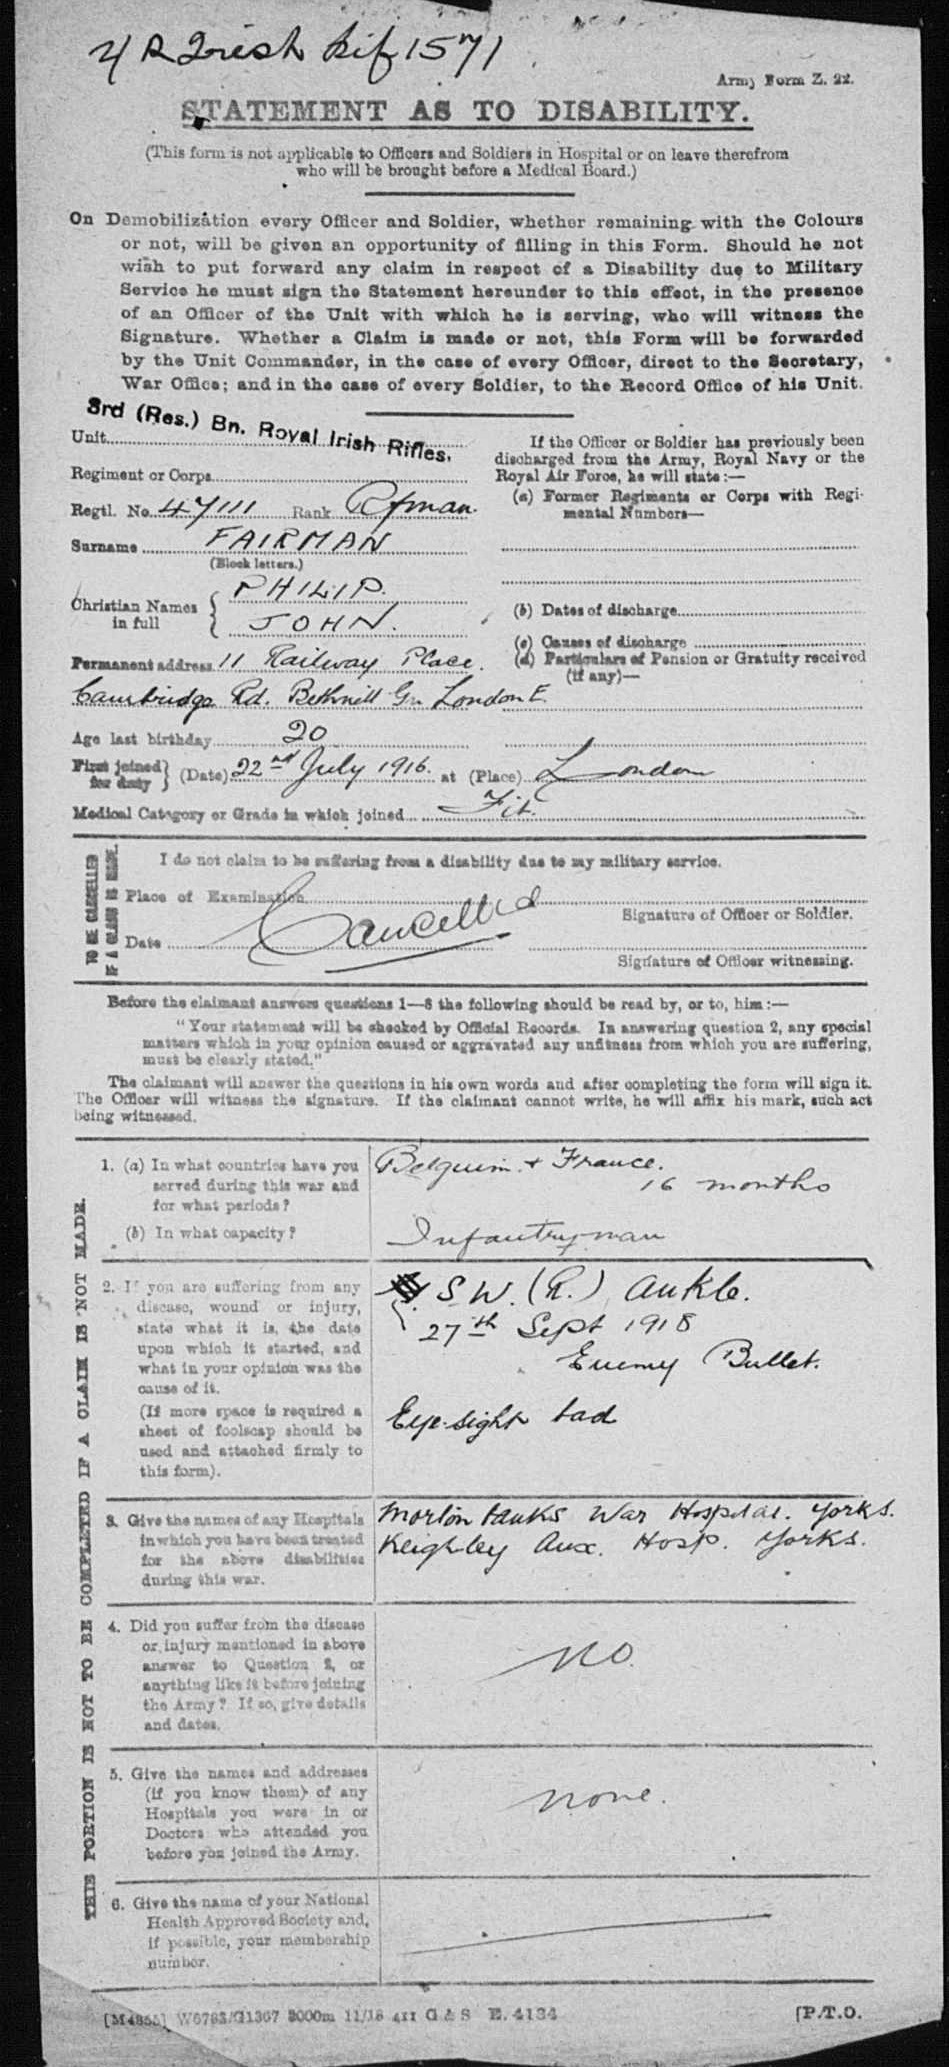 4/ R Irish Rif 1571
Army Form Z. 22.
STATEMENT AS TO DISABILITY.
(This form is not applicable to Officers and Soldiers in Hospital or on leave therefrom
who will be brought before a Medical Board.)
On Demobilization every Officer and Soldier, whether remaining with the Colours
or not, will be given an opportunity of filling in this Form. Should he not
wish to put forward any claim in respect of a Disability due to Military
Service he must sign the Statement hereunder to this effect, in the presence
of an Officer of the Unit with which he is serving, who will witness the
Signature. Whether a Claim is made or not, this Form will be forwarded
by the Unit Commander, in the case of every Officer, direct to the Secretary,
War Office; and in the case of every Soldier, to the Record Office of his Unit.
3rd (Res.) Bn. Royal Irish Rifles.
Unit
Regiment or Corps
Regtl. No. 47111 Rank Rfman.
Surname FAIRMAN
(Block letters.)
Christian Names in full { PHILIP.
JOHN.
Permanent address 11 Railway Place.
Cambridge Rd. Bethnell Gn. London E.
Age last birthday 20
First joined for duty } (Date) 22nd July 1916. at (Place) London
Medical Category or Grade in which joined Fit.
If the Officer or Soldier has previously been
discharged from the Army, Royal Navy or the
Royal Air Force, he will state:—
(a) Former Regiments or Corps with Regi-
mental Numbers—
(b) Dates of discharge
(c) Causes of discharge
(d) Particulars of Pension or Gratuity received
(if any)—
TO BE CANCELLED
IF A CLAIM IS MADE.
I do not claim to be suffering from a disability due to my military service.
Place of Examination
Cancelled
Signature of Officer or Soldier.
Date
Signature of Officer witnessing.
Before the claimant answers questions 1—8 the following should be read by, or to, him:—
"Your statement will be checked by Official Records. In answering question 2, any special
matters which in your opinion caused or aggravated any unfitness from which you are suffering,
must be clearly stated."
The claimant will answer the questions in his own words and after completing the form will sign it.
The Officer will witness the signature. If the claimant cannot write, he will affix his mark, such act
being witnessed.
THIS PORTION IS NOT TO BE COMPLETED IF A CLAIM IS NOT MADE.
1. (a) In what countries have you
served during this war and
for what periods?
(b) In what capacity?
Belguim. + France.
16 months
Infantryman
2. If you are suffering from any
disease, wound or injury,
state what it is, the date
upon which it started, and
what in your opinion was the
cause of it.
(If more space is required a
sheet of foolscap should be
used and attached firmly to
this form).
S W. (R.) Ankle.
27th Sept 1918
Enemy Bullet.
Eye-sight bad
3. Give the names of any Hospitals
in which you have been treated
for the above disabilities
during this war.
Morton banks War Hospital. Yorks.
Keighley Aux. Hosp. Yorks.
4. Did you suffer from the disease
or injury mentioned in above
answer to Question 2, or
anything like it before joining
the Army? If so, give details
and dates.
No.
5. Give the names and addresses
(if you know them) of any
Hospitals you were in or
Doctors who attended you
before you joined the Army.
None.
6. Give the name of your National
Health Approved Society and,
if possible, your membership
number.
[M4355] W6783/G1367 3000m 11/18 G & S E. 4134
[P.T.O.